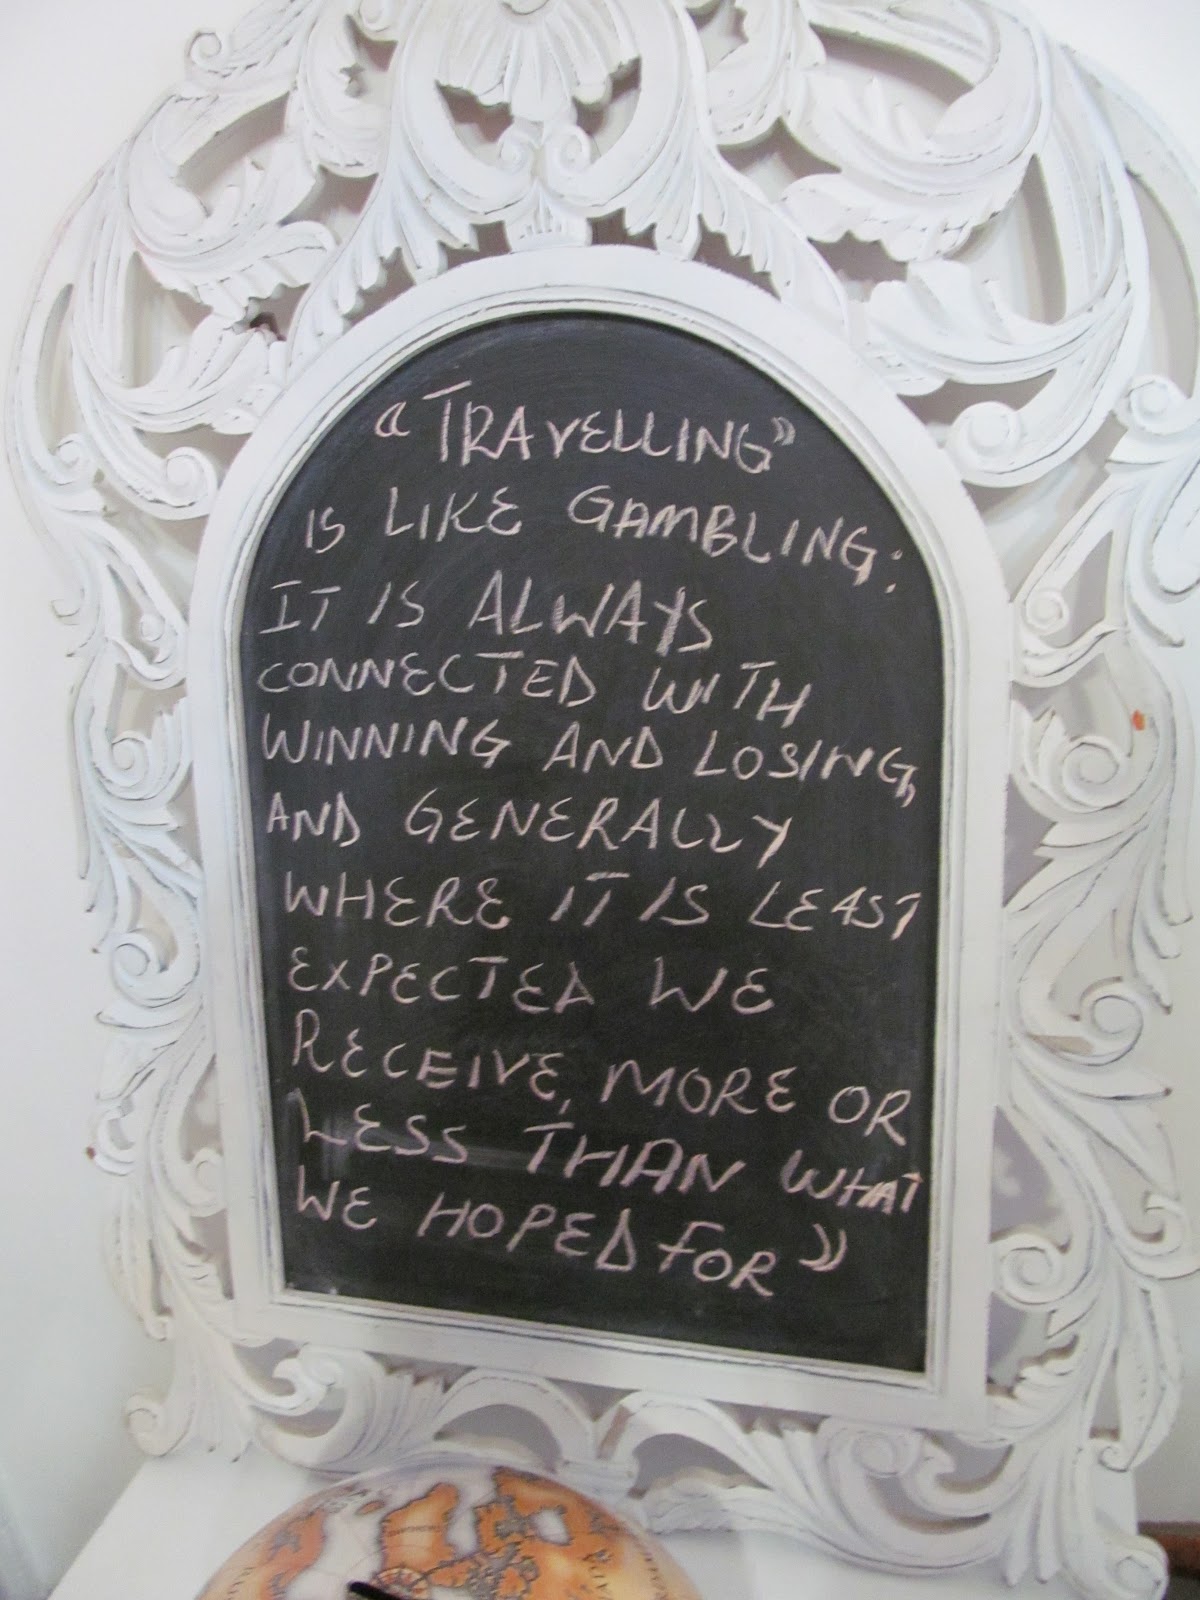 “TRAVELLING”
IS LIKE GAMBLING:
IT IS ALWAYS
CONNECTED WITH
WINNING AND LOSING,
AND GENERALLY
WHERE IT IS LEAST
EXPECTED WE
RECEIVE, MORE OR
LESS THAN WHAT
WE HOPED FOR”